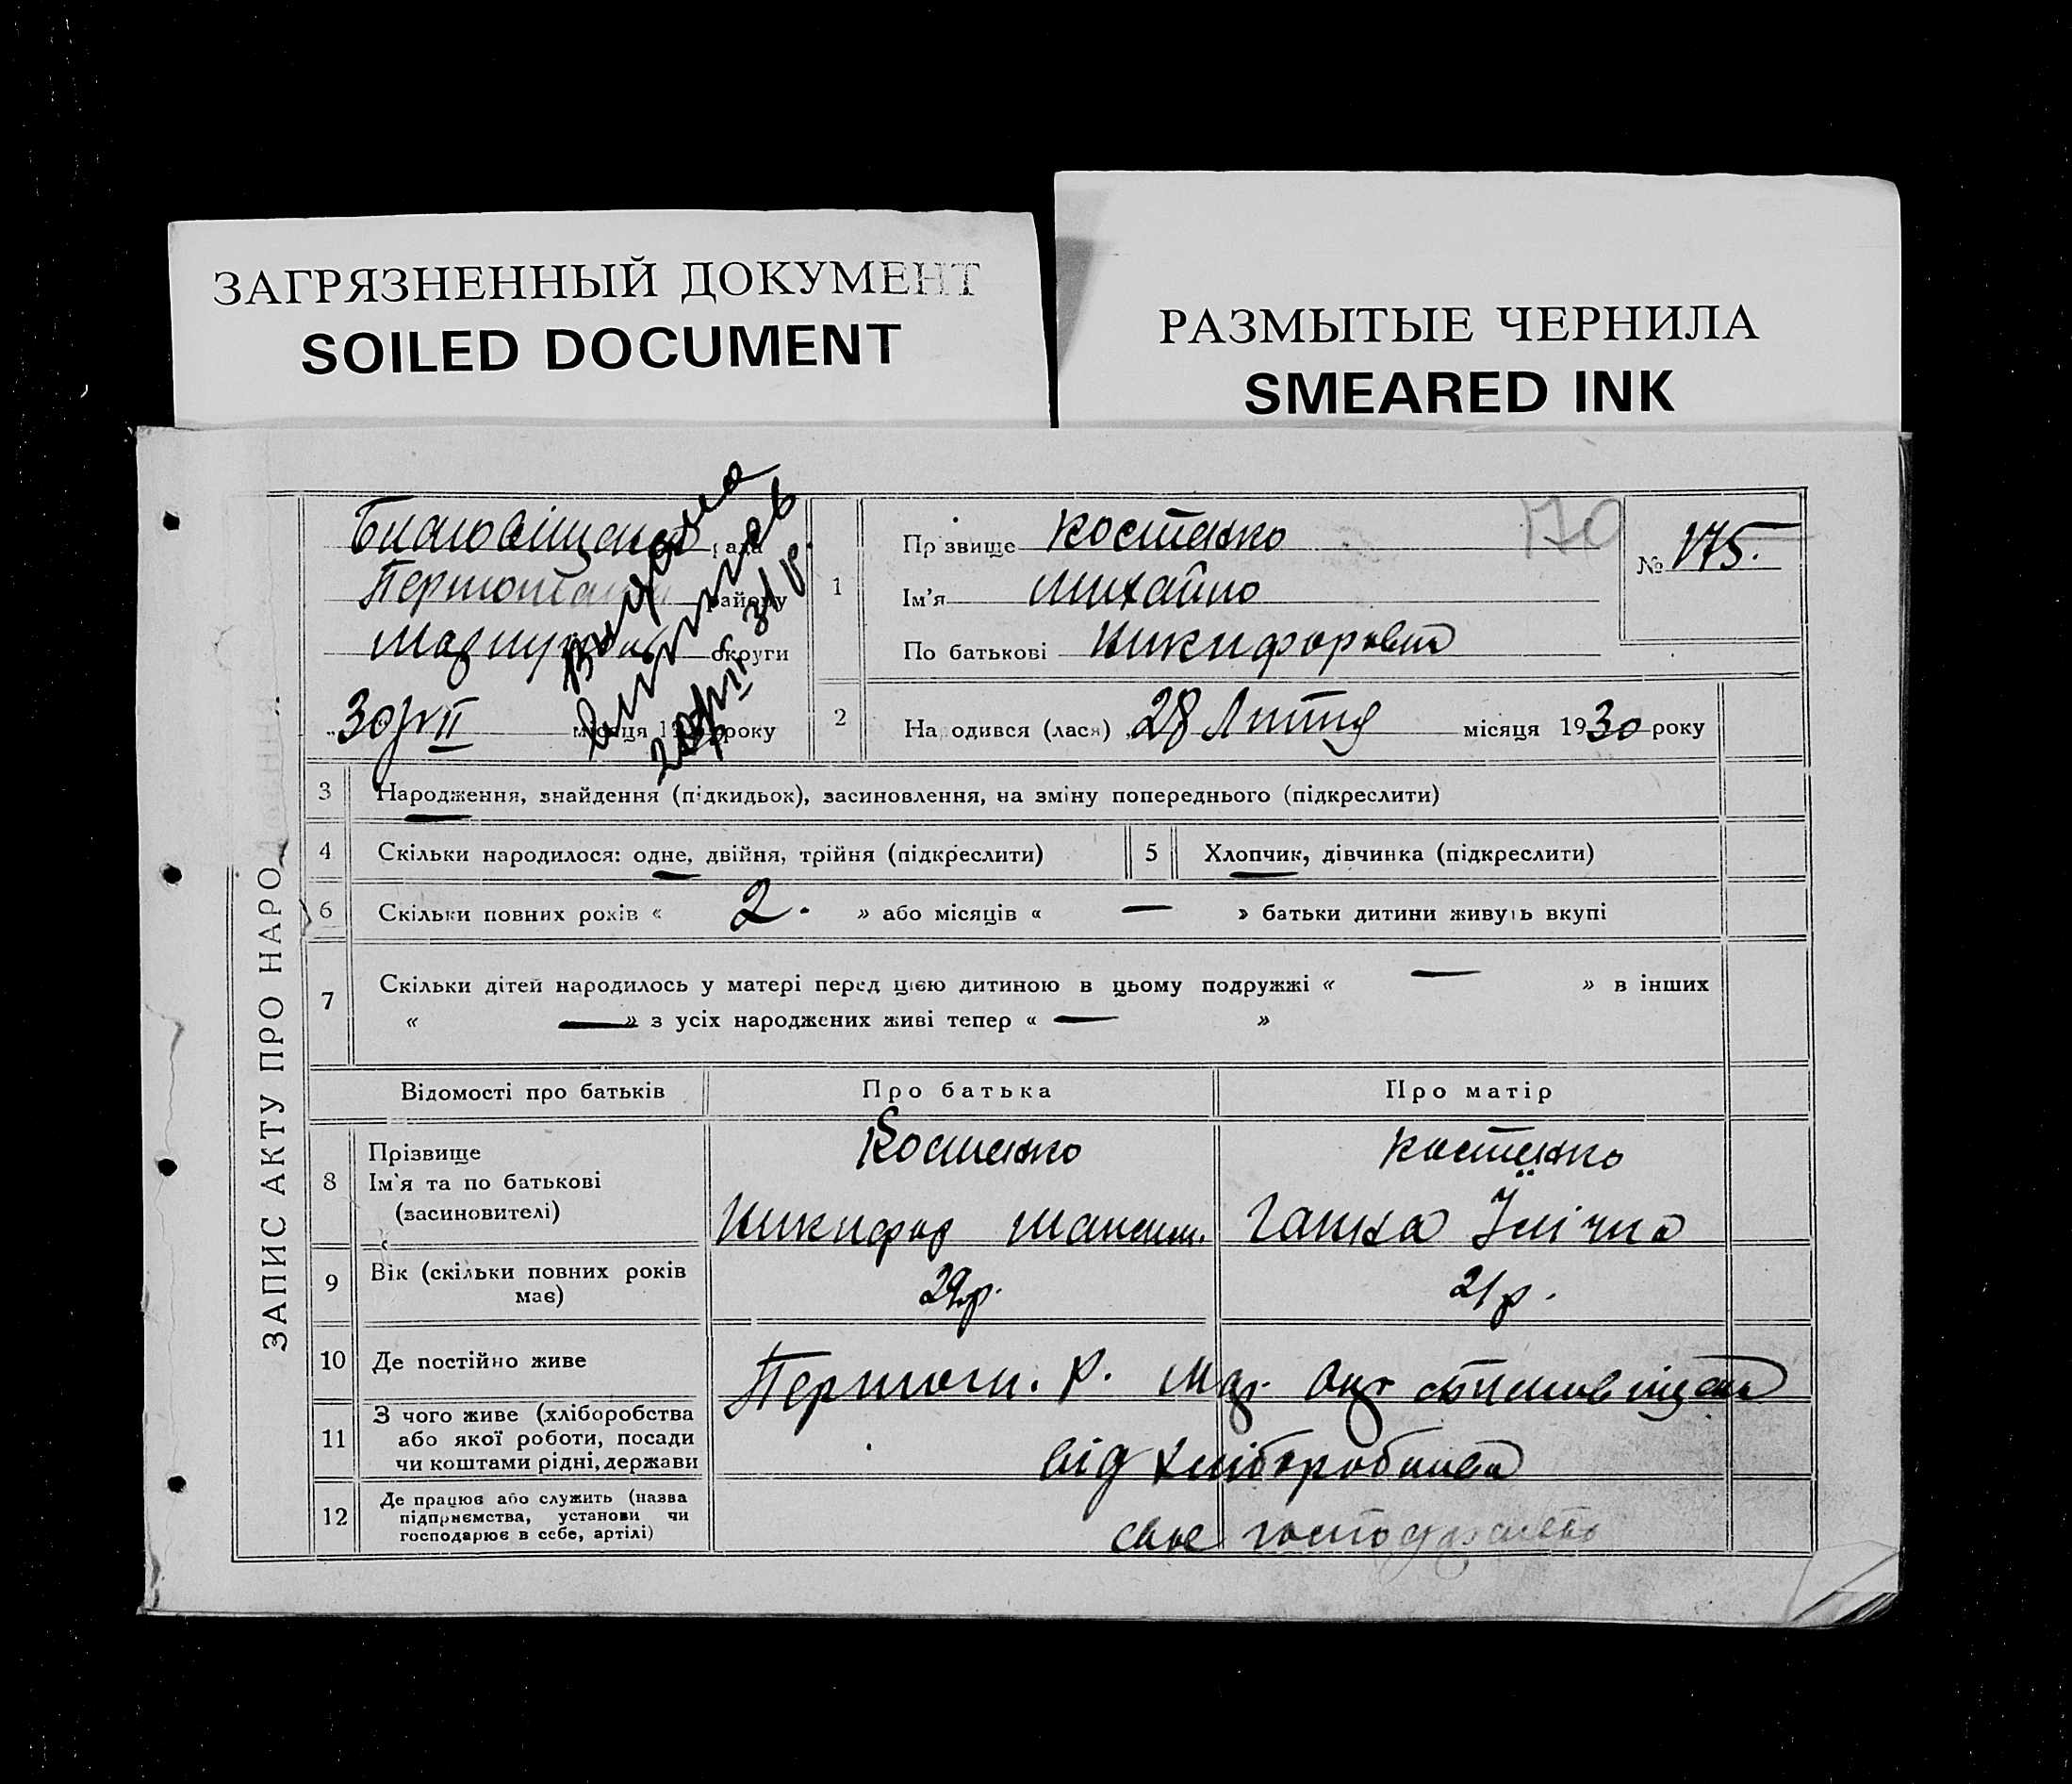 ЗАГРЯЗНЕННЫЙ ДОКУМЕНТ
SOILED DOCUMENT
РАЗМЫТЫЕ ЧЕРНИЛА
SMEARED INK
ЗАПИС АКТУ ПРО НАРО
рада
району
округи
30/VII місяця 19 року
170
№ 175.
1
Прізвище Костенко
Ім'я Михайло
По батькові Никифорович
2
Народився (лася) 28 Липня місяця 1930 року
3 Народження, знайдення (підкидьок), засиновлення, на зміну попереднього (підкреслити)
4 Скільки народилося: одне, двійня, трійня (підкреслити) 5 Хлопчик, дівчинка (підкреслити)
6 Скільки повних років « 2. » або місяців « — » батьки дитини живуть вкупі
7 Скільки дітей народилось у матері перед цією дитиною в цьому подружжі « — » в інших
« — » з усіх народжених живі тепер « — »
Відомості про батьків Про батька Про матір
8 Прізвище Костенко Костенко
Ім'я та по батькові
(засновителі) Никифор Ганна Їлічна
9 Вік (скільки повних років
має) 29р. 21р.
10 Де постійно живе Першотн. Р. Мар. Окр.
11 З чого живе (хліборобства
або якої роботи, посади
чи коштами рідні, держави від хліборобства
12 Де працює або служить (назва
підприємства, установи чи
господарює в себе, артілі) своє господарство